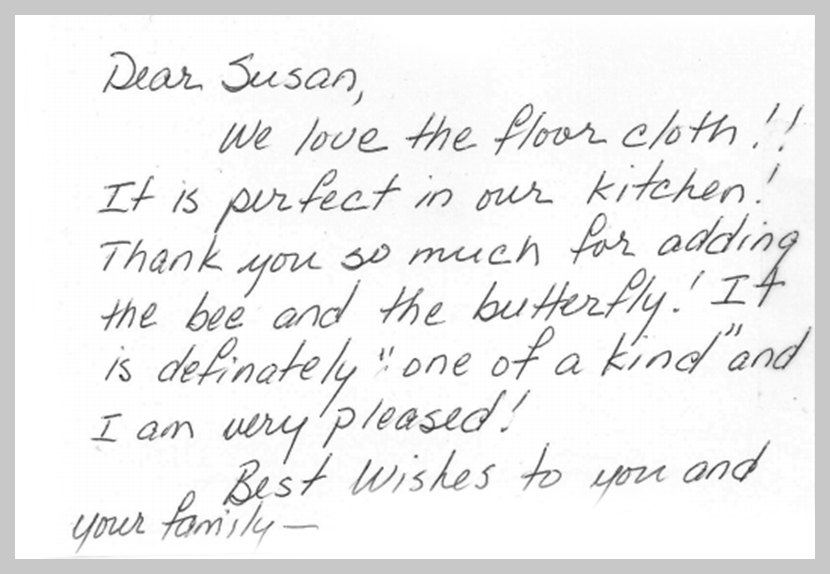 Dear Susan,
We love the floor cloth!!
It is perfect in our kitchen!
Thank you so much for adding
the bee and the butterfly! It
is definately "one of a kind" and
I am very pleased!
Best Wishes to you and
your family—